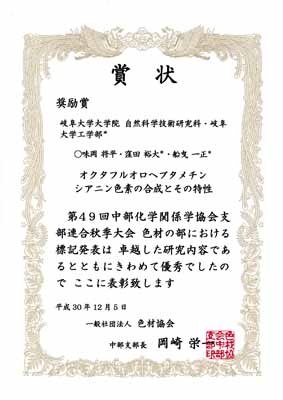 賞状
奨励賞
岐阜大学大学院 自然科学技術研究科・岐阜
大学工学部*
〇味岡 将平・窪田 裕大*・船曳 一正*
オクタフルオロヘプタメチン
シアニン色素の合成とその特性
第49回中部化学関係学協会支
部連合秋季大会 色材の部における
標記発表は 卓越した研究内容であ
るとともにきわめて優秀でしたの
で ここに表彰致します
平成30年12月5日
一般社団法人 色材協会
中部支部長 岡崎 栄一